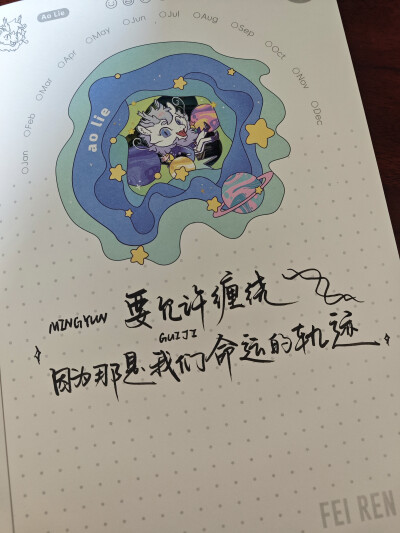 Ao Lie
Jan
Feb
Mar
Apr
May
Jun
Jul
Aug
Sep
Oct
Nov
Dec
ao lie
MINGYUN 要允许缠绕
GUIJI
因为那是我们命运的轨迹
FEI REN